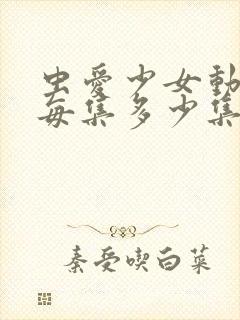 虫愛少女動
每集多少集
秦受喫白菜